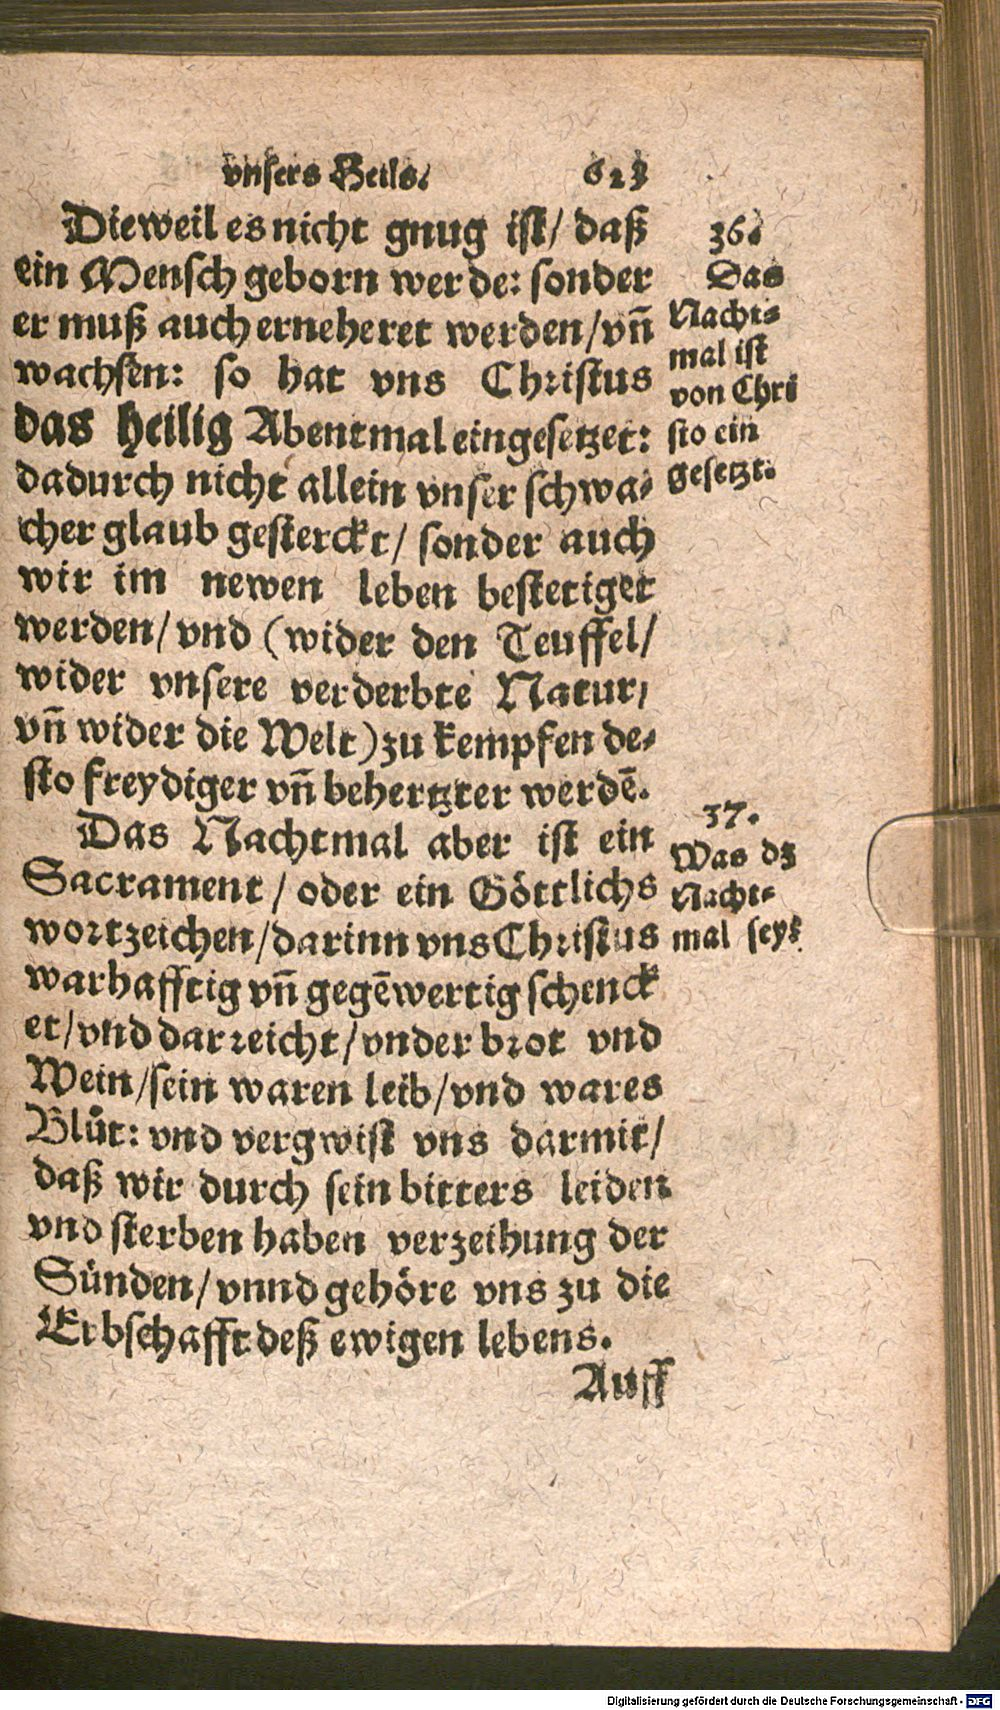 vnsers Heils. 623
Dieweil es nicht gnug ist/ daß
ein Mensch geborn werde: sonder
er muß auch erneheret werden/ vñ
wachsen: so hat vns Christus
das heilig Abentmal eingesetzet:
dadurch nicht allein vnser schwa-
cher glaub gesterckt/ sonder auch
wir im newen leben bestetiget
werden/ vnd (wider den Teuffel/
wider vnsere verderbte Natur/
vñ wider die Welt) zu kempfen de-
sto freydiger vñ behertzter werdẽ.
Das Nachtmal aber ist ein
Sacrament/ oder ein Göttlichs
wortzeichen/ darinn vns Christus
warhafftig vñ gegẽwertig schenck
et/ vnd darreicht/ vnder brot vnd
Wein/ sein waren leib/ vnd wares
Blůt: vnd vergwist vns darmit/
daß wir durch sein bitters leiden
vnd sterben haben verzeihung der
Sünden/ vnnd gehöre vns zu die
Erbschafft deß ewigen lebens.
Auff
36.
Das
Nacht-
mal ist
von Chri
sto ein
gesetzt.
37.
Was dz
Nacht-
mal sey?
Digitalisierung gefördert durch die Deutsche Forschungsgemeinschaft - DFG